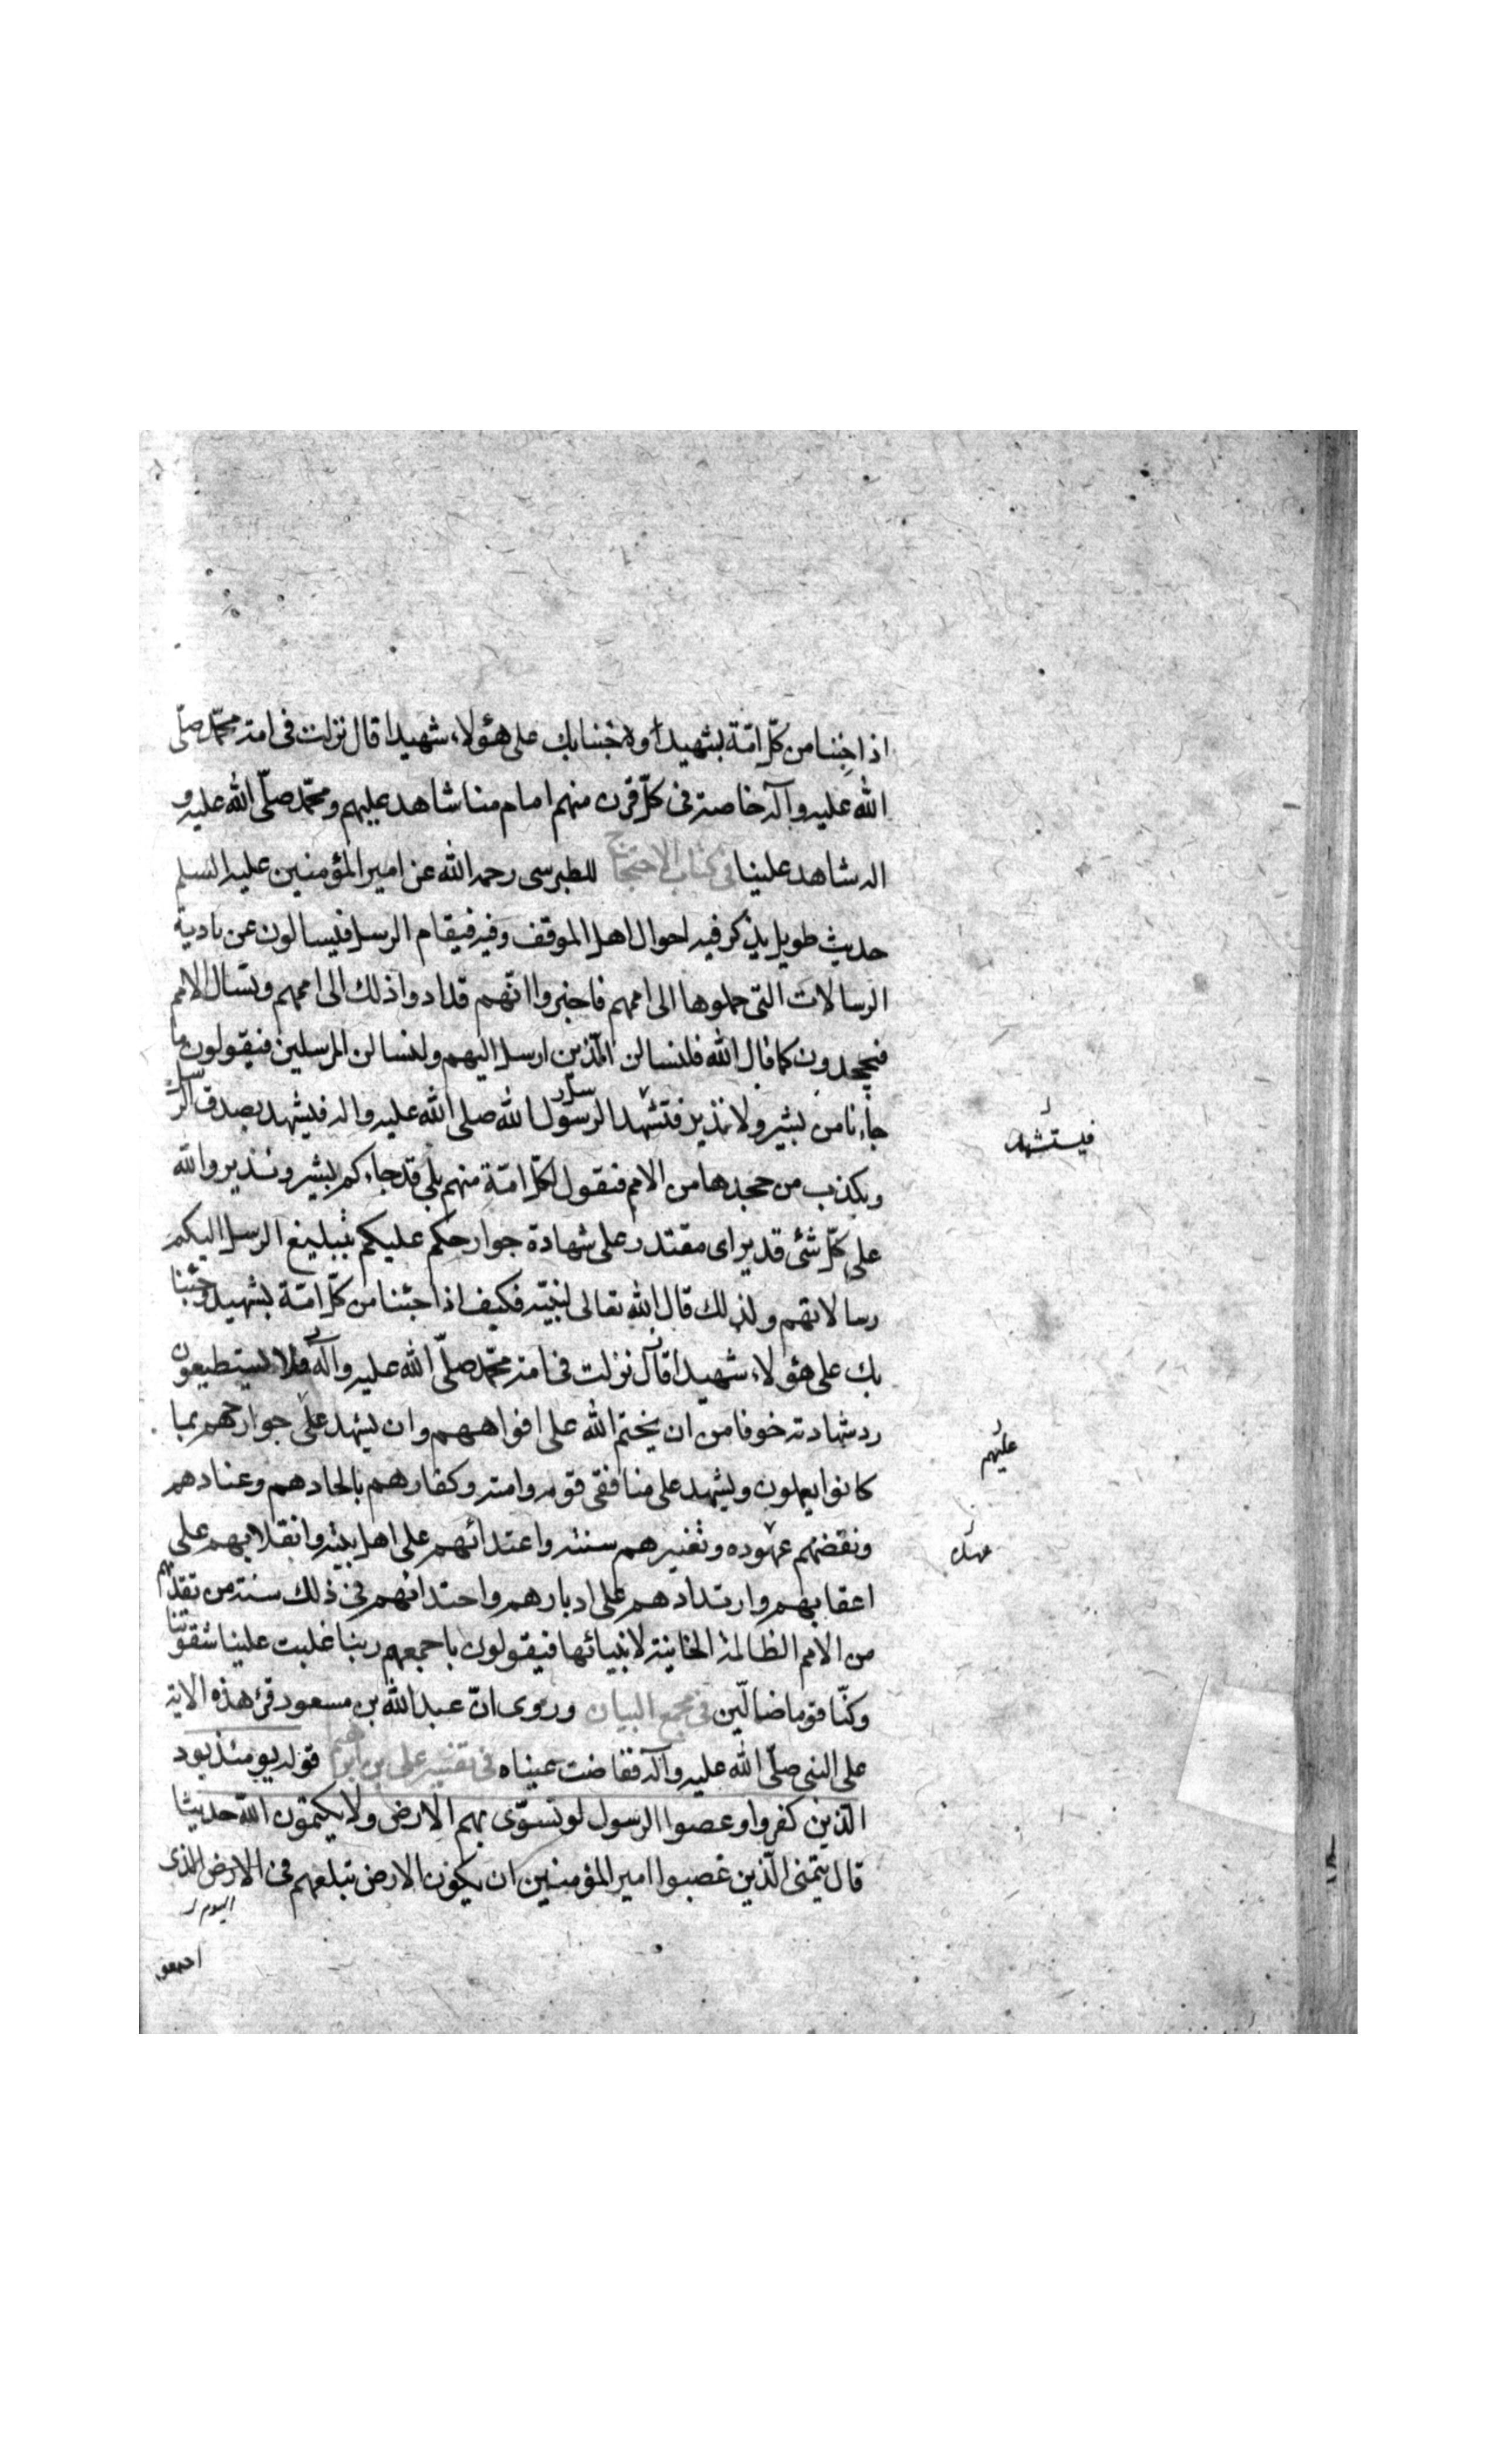 اذا جئنا من كلّ امّة بشهيد وجئنا بك على هؤلاء شهيدا قال نزلت فى امة محمّد صلّى
الله عليه وآله خاصة فى كلّ قرن منهم امام منا شاهد عليهم ومحمّد صلّى الله عليه و
اله شاهد علينا فى كتاب الاحتجاج للطبرسى رحمه الله عن امير المؤمنين عليه السلم
حديث طويل يذكر فيه احوال اهل الموقف وفيه فيقام الرسل فيسالون عن تادية
الرسالات التى حملوها الى اممهم فاخبروا انّهم قد ادوا ذلك الى اممهم وتسال الامم
فيجحدون كما قال الله فلنسالن الّذين ارسل اليهم ولنسالن المرسلين فيقولون ما
جاءنا من بشير ولا نذير فتشهد الرسل رسول الله صلى الله عليه واله فيشهد بصدق الرسل
فيستشهد
ويكذب من جحدها من الامم فيقول لكلّ امّة منهم بلى قد جاءكم بشير ونذير والله
على كلّ شئ قدير اى مقتدر على شهادة جوارحكم عليكم بتبليغ الرسل اليكم
رسالاتهم ولذلك قال الله تعالى لنبيّه فكيف اذا جئنا من كلّ امّة بشهيد وجئنا
بك على هؤلاء شهيدا قال نزلت فى امة محمّد صلّى الله عليه وآله فلا يستطيعون
رد شهادته خوفا من ان يختم الله على افواههم وان يشهد على جوارحهم بما
عليهم
كانوا يعملون ويشهد على منافقى قومه وامته وكفارهم بالحادهم وعنادهم
ونقضهم عهوده وتغييرهم سنته واعتدائهم على اهل بيته وانقلابهم على
عهده
اعقابهم وارتدادهم على ادبارهم واحتذائهم فى ذلك سنة من تقدّمهم
من الامم الظالمة الخاينة لانبيائها فيقولون باجمعهم ربنا غلبت علينا شقوتنا
وكنّا قوما ضالّين فى مجمع البيان وروى انّ عبد الله بن مسعود قرئ هذه الاية
على النبى صلّى الله عليه وآله ففاضت عيناه فى تفسير على بن ابراهيم قوله يومئذ يود
الّذين كفروا وعصوا الرسول لو تسوّى بهم الارض ولا يكتمون الله حديثا
قال يتمنى الّذين غصبوا امير المؤمنين ان يكون الارض تبلعهم فى الارض الذى
اليوم
اجتمعوا